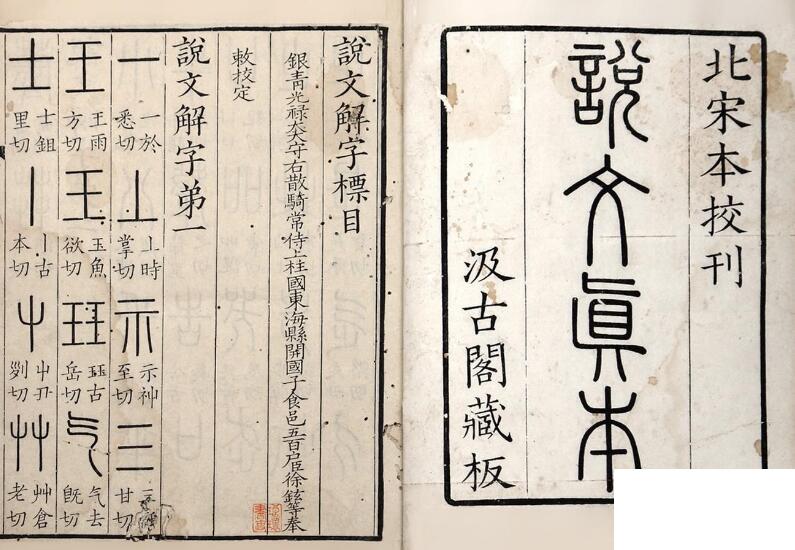 北宋本挍刊
說文眞本
汲古閣藏板
說文解字標目
銀青光祿大夫守右散騎常侍上柱國東海縣開國子食邑五百户臣徐鉉等奉
敕挍定
說文解字第一
一 一於悉切 丄 丄時掌切 示 示神至切 三 三 甘切
王 王雨方切 王 玉魚欲切 玨 玨古岳切 气 气去旣切
士 士鉏里切 丨 丨古本切 屮 屮丑列切 艸 艸倉老切